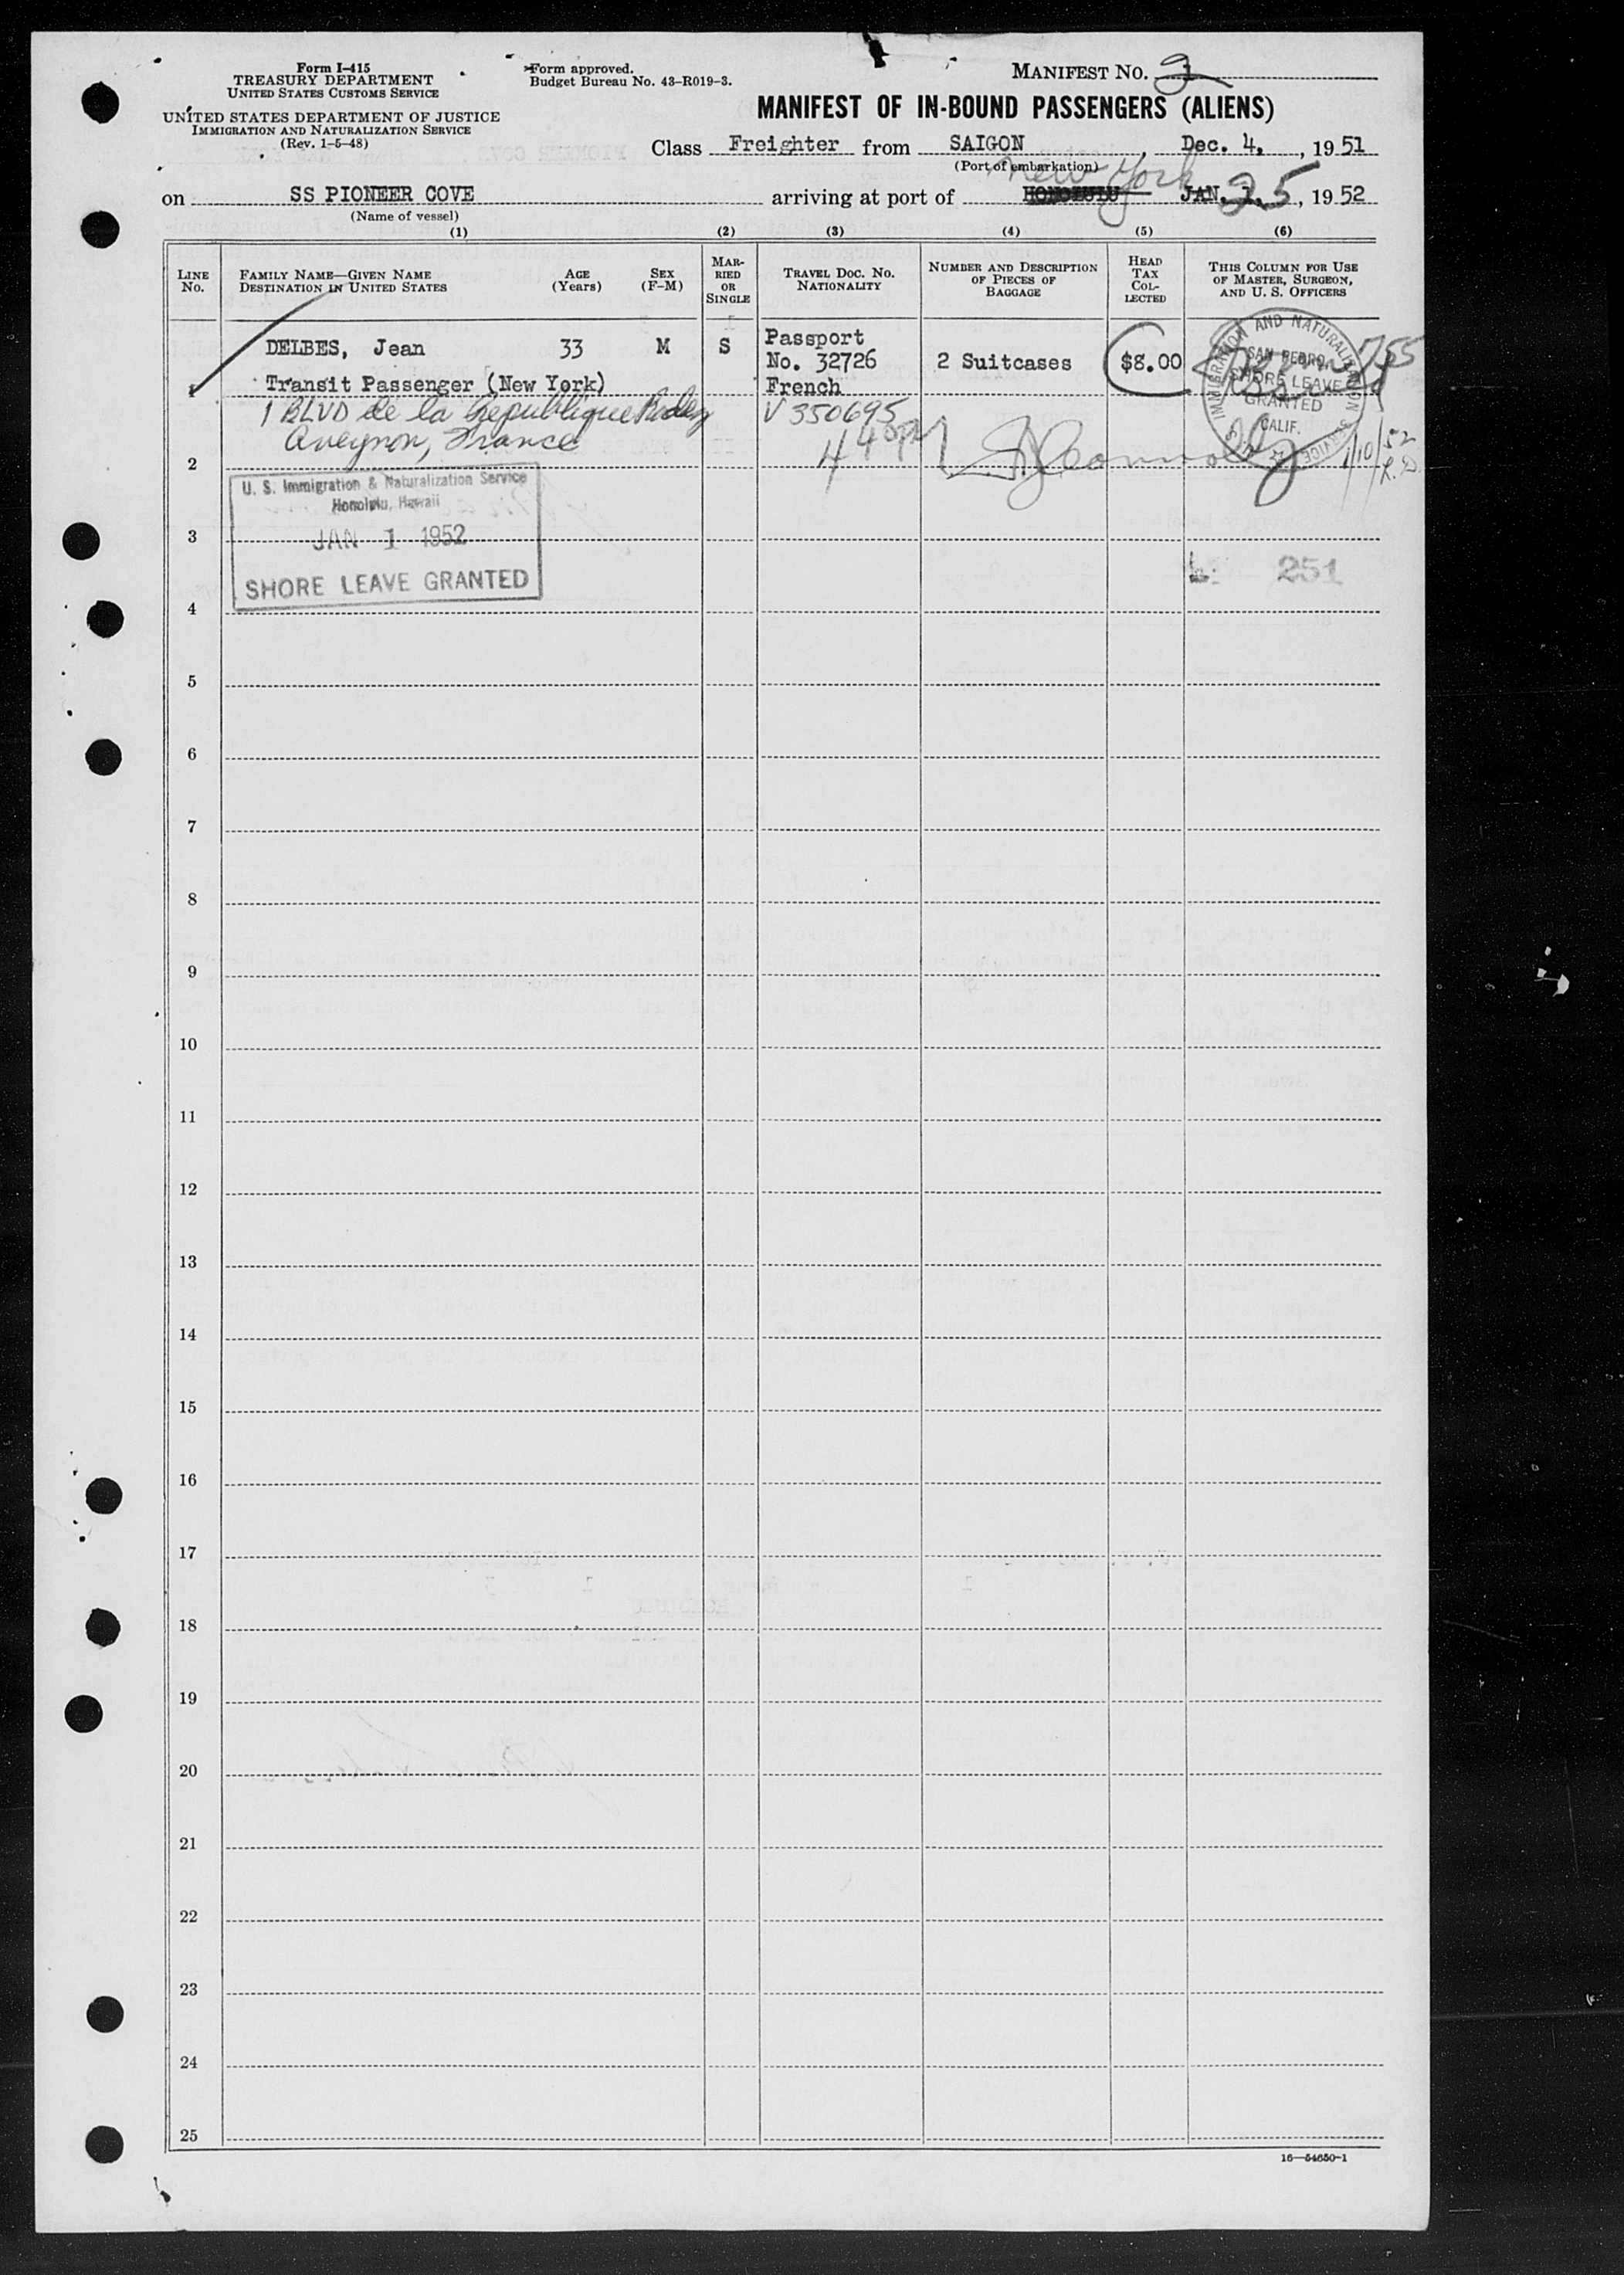 Form I-415
TREASURY DEPARTMENT
UNITED STATES CUSTOMS SERVICE
UNITED STATES DEPARTMENT OF JUSTICE
IMMIGRATION AND NATURALIZATION SERVICE
(Rev. 1-5-48)
Form approved.
Budget Bureau No. 43-R019-3.
MANIFEST NO.
MANIFEST OF IN-BOUND PASSENGERS (ALIENS)
Class Freighter from SAIGON, Dec. 4, 1951
(Port of embarkation)
New York
on SS PIONEER COVE arriving at port of HONOLULU JAN. 25, 1952
(Name of vessel)
(1) (2) (3) (4) (5) (6)
LINE No.
FAMILY NAME—GIVEN NAME
DESTINATION IN UNITED STATES
AGE (Years)
SEX (F-M)
MARRIED OR SINGLE
TRAVEL DOC. NO.
NATIONALITY
NUMBER AND DESCRIPTION OF PIECES OF BAGGAGE
HEAD TAX COLLECTED
THIS COLUMN FOR USE OF MASTER, SURGEON, AND U. S. OFFICERS
1
DELBES, Jean 33 M S
Passport
No. 32726
French
2 Suitcases
$8.00
Transit Passenger (New York)
1 BLVD de la Republique Rodez
Aveyron, France
V 350695
IMMIGRATION AND NATURALIZATION SERVICE
SAN PEDRO,
SHORE LEAVE
GRANTED
CALIF.
1/10/52
2
U. S. Immigration & Naturalization Service
Honolulu, Hawaii
JAN 1 1952
SHORE LEAVE GRANTED
251
3
4
5
6
7
8
9
10
11
12
13
14
15
16
17
18
19
20
21
22
23
24
25
16—54650-1